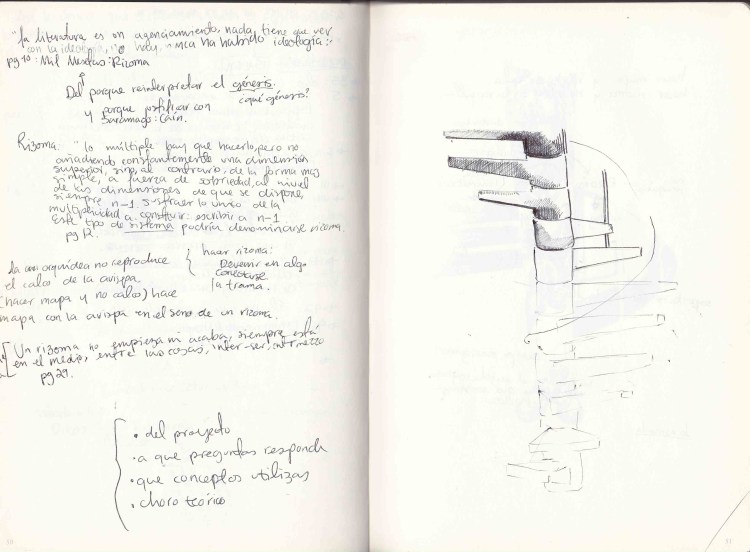 "la literatura es un agenciamiento, nada tiene que ver
con la ideología, no hay, nunca ha habido ideología:"
pg 10: Mil Mesetas: Rizoma
Del porque reinterpretar el génesis.
¿qué génesis?
y porque justificar con
Saramago: Caín.
Rizoma: "lo múltiple hay que hacerlo, pero no
añadiendo constantemente una dimensión
superior, sino, al contrario, de la forma mas
simple, a fuerza de sobriedad, al nivel
de las dimensiones de que se dispone,
siempre n-1 sustraer lo único de la
multiplicidad a constituir: escribir a n-1
Este tipo de sistema podría denominarse rizoma.
pg 12.
la orquídea no reproduce
el calco de la avispa
(hacer mapa y no calco) hace
mapa con la avispa en el seno de un rizoma.
hacer rizoma:
Devenir en algo
conectarse
la trama.
Un rizoma no empieza ni acaba, siempre está
en el medio, entre las cosas, inter-ser, intermezzo
pg 29.
• del proyecto
• a que preguntas responde
• que conceptos utilizas
• choro teórico